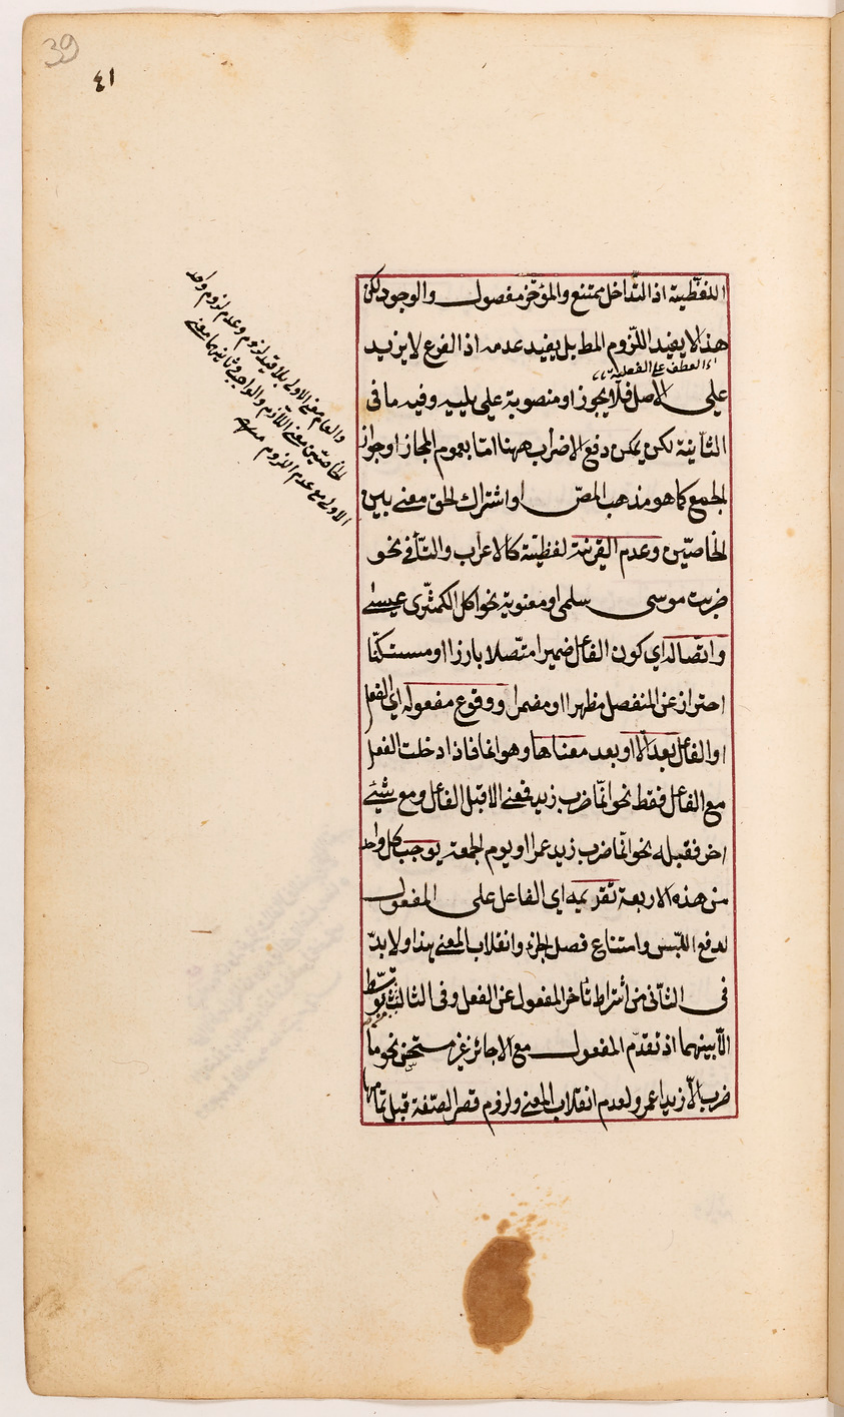 39
٤١
اللفظية اذ التداخل ممتنع والمؤخر مفصول والوجود لكن
هذا لا يفيد اللزوم المط بل يفيد عدمه اذ الفرع لا يزيد
العطف على الفعلية
على الاصل فلا يجوز او منصوبة على بليه وفيه ما فى
الثانية لكن يمكن دفع الاضراب ههنا امّا بعموم المجاز او جواز
الجمع كما هو مذهب المص او اشتراك لحق معنى بين
الخاصتين وعدم القرينة لفظية كالاعراب والتاء فى نحو
ضربت موسى سلمى او معنوية نحو اكل الكمثرى عيسى
واتصاله اى كون الفاعل ضميرا متصلا بارزا او مستكنّا
احتراز عن المنفصل مظهرا او مضمرا ووقوع مفعوله اى الفعل
او الفاعل بعد الّا او بعد معناها وهو انما فاذا دخلت الفعل
مع الفاعل فقط نحو انّما ضرب زيد فمعنى الا قبل الفاعل ومع شيئ
اخر فقبله نحو انّما ضرب زيد عمرا او يوم الجمعة يوجب كل واحد
من هذه الاربعة تقديمه اى الفاعل على المفعول
لدفع اللبس وامتناع فصل الجزء وانقلاب المعنى هذا ولا بدّ
فى الثانى من اشراط تأخر المفعول عن الفعل وفى الثالث توسّط
الّا بينهما اذ تقدّم المفعول مع الا جائز غير مستحسن نحو ما
ضرب الّا زيدا عمرو لعدم انقلاب المعنى ولزوم قصر الصفة قبل تمامها
والعام معنى الاولى بلا قيد لزوم وعدم لزوم واحد
الخاصتين معنى اللازم والواجبى وثانيهما معنى
الاولى مع عدم اللزوم منه